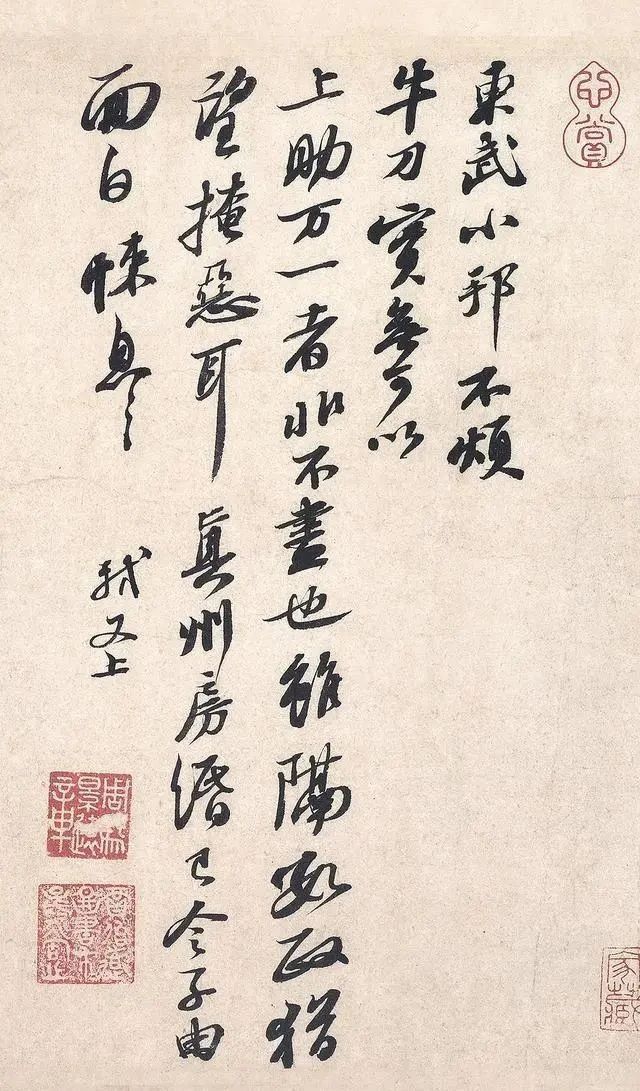 東武小邦不煩
牛刀實無可以
上助万一者非不盡也雖隔數政猶
望掩惡耳真州房緡已令子由
面白悚息〻
軾又上
心賞
家藏